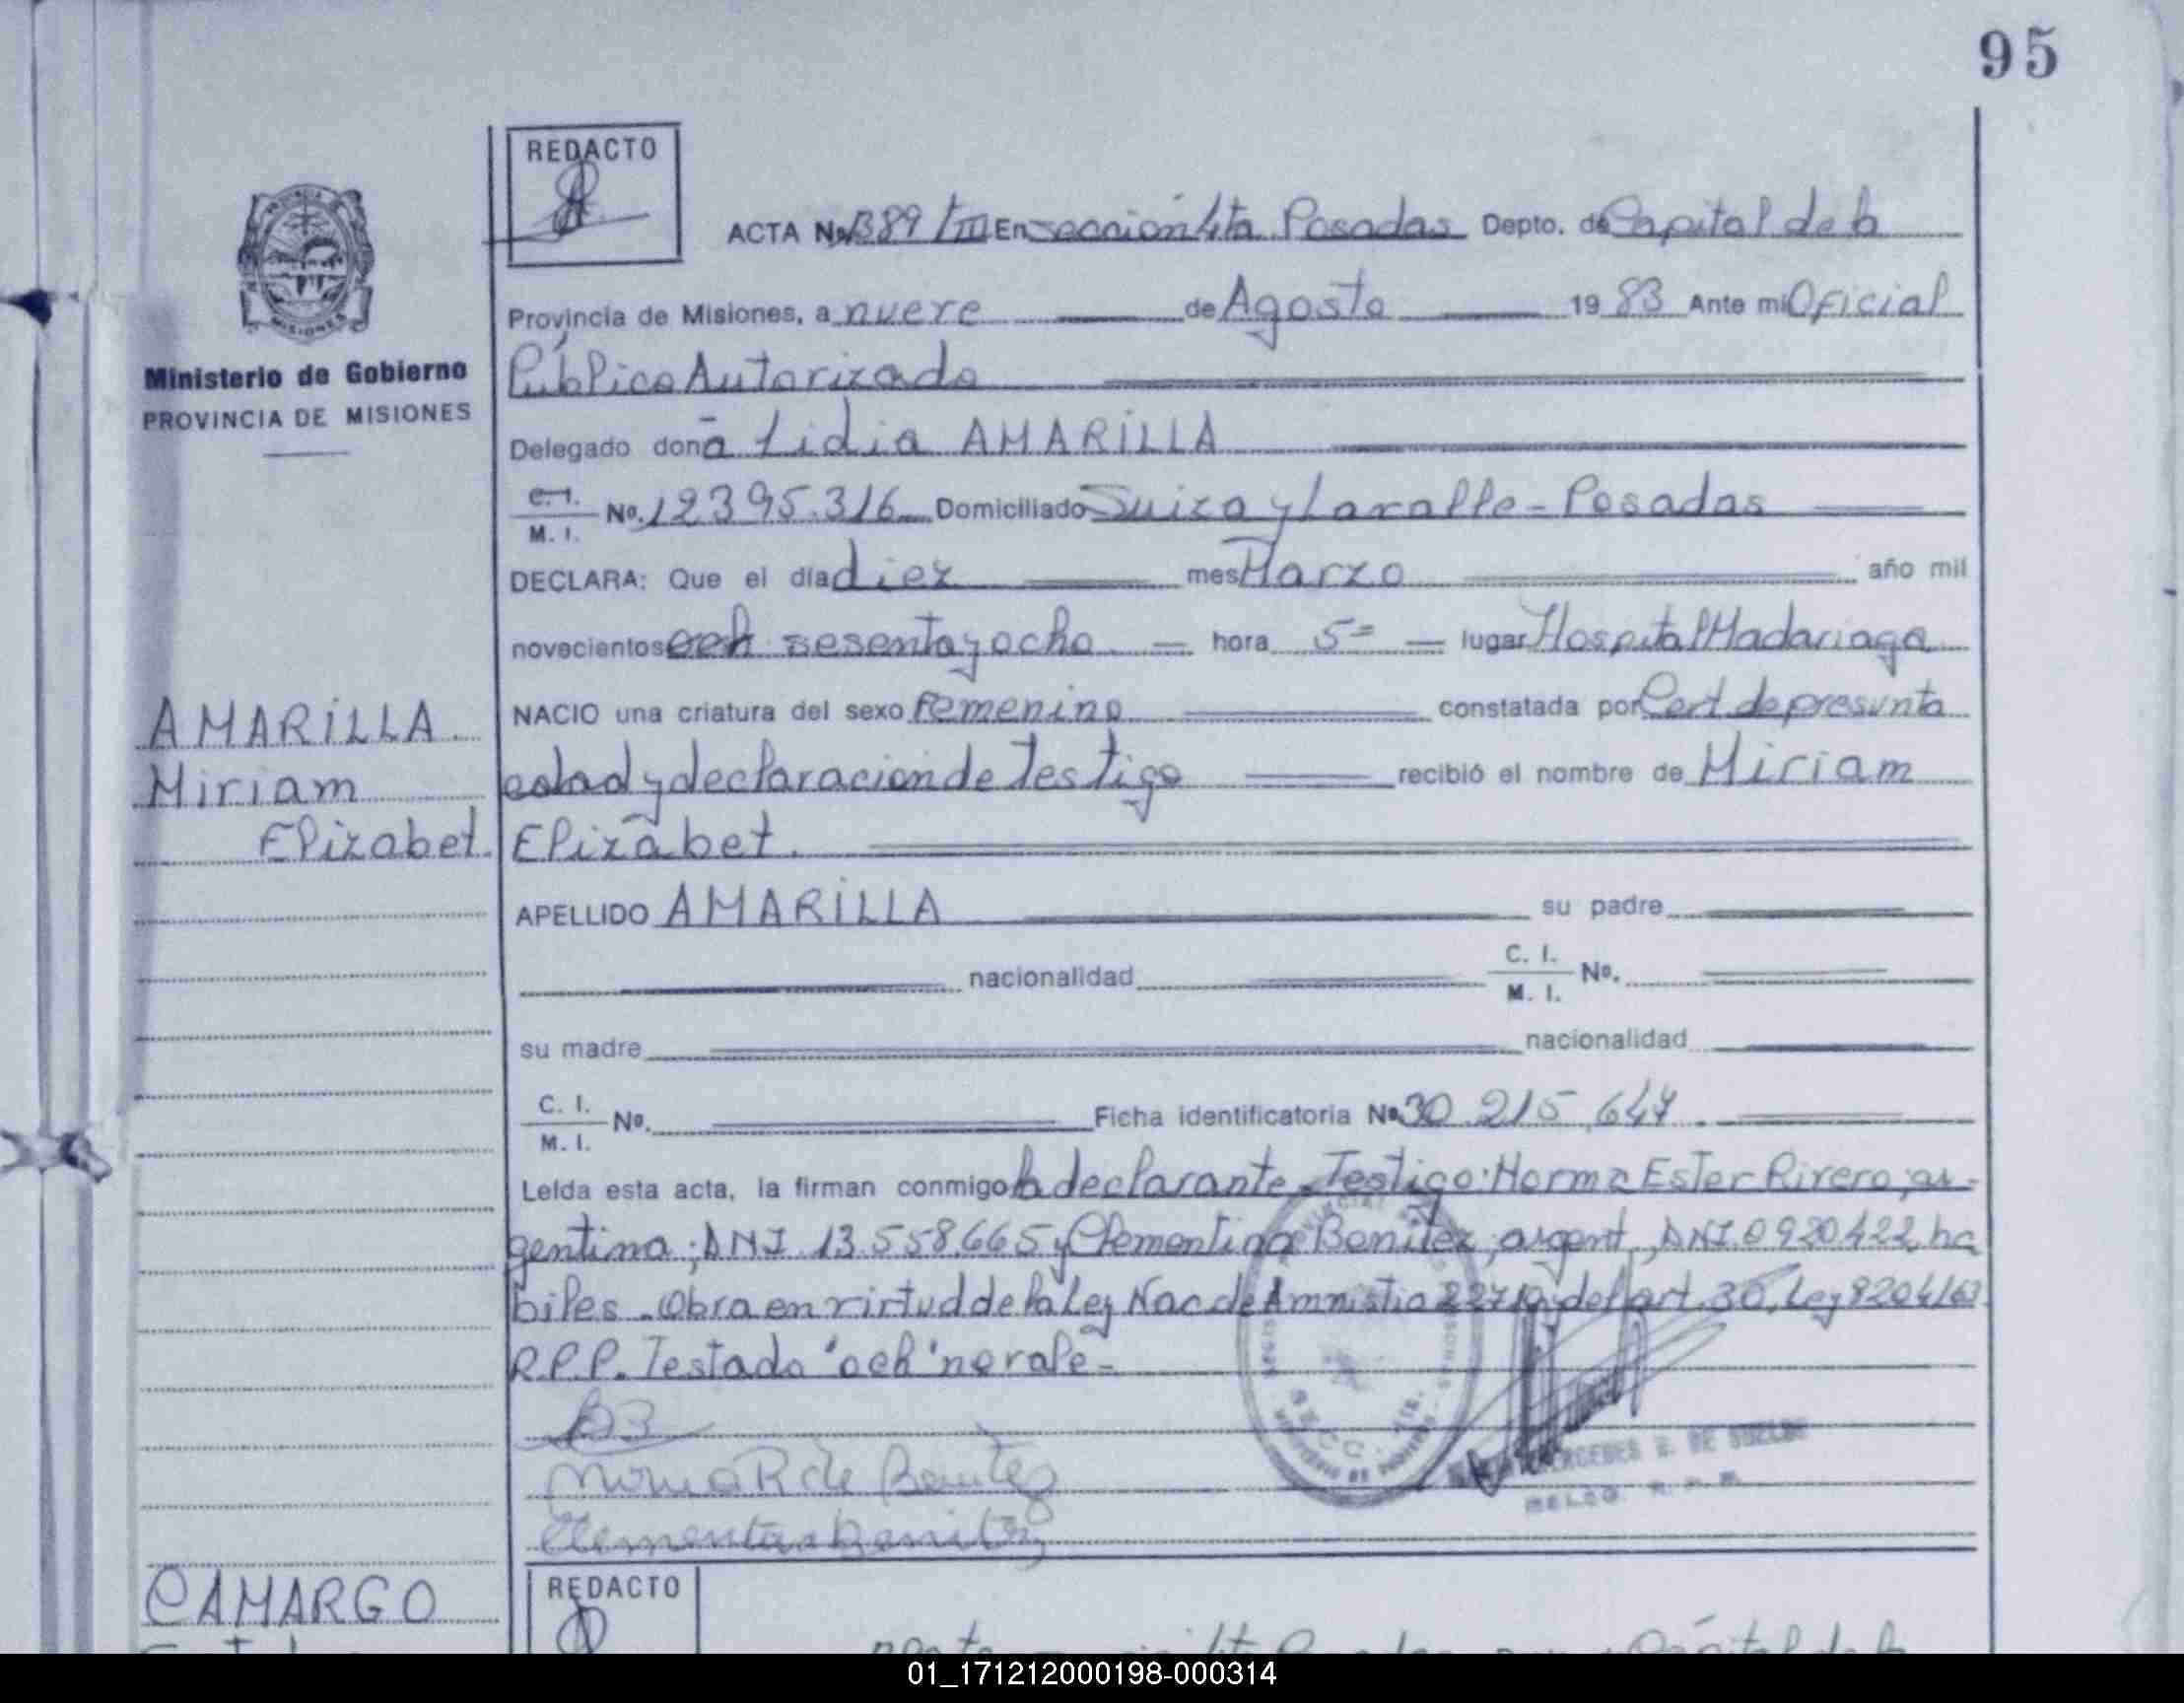 95
REDACTO
ACTA No. 1389 /TIII En sección 4ta Posadas Depto. de Capital de la
Ministerio de Gobierno
PROVINCIA DE MISIONES
Provincia de Misiones, a nueve de Agosto 19 83 Ante mi Oficial
Público Autorizado
Delegado doña Lidia AMARILLA
C. I.
M. I. No. 12395.316 Domiciliado Suiza y Lavalle - Posadas
DECLARA: Que el día diez mes Marzo año mil
novecientos och sesenta y ocho. hora 5= lugar Hospital Madariaga
NACIO una criatura del sexo Femenino constatada por Cert de presunta
edad y declaracion de Testigo recibió el nombre de Miriam
Elizabet.
AMARILLA.
Miriam
Elizabet.
APELLIDO AMARILLA su padre
nacionalidad C. I.
M. I. No.
su madre nacionalidad
C. I.
M. I. No. Ficha identificatoria No. 30.215.647.
Leída esta acta, la firman conmigo la declarante. Testigo: Norma Ester Rivero, ar-
gentina; DNI 13.558.665 y Clementina Benitez, argent, DNI. 0920422, ha
biles. Obra en virtud de la Ley Nac de Amnistia y del art. 30, Ley 8204/63
R.P.P. Testado 'och' no vale-
Norma R de Benitez
Clementina Benitez
MERCEDES E. DE
DELEG. R. P. P.
CAMARGO
REDACTO
01_171212000198-000314